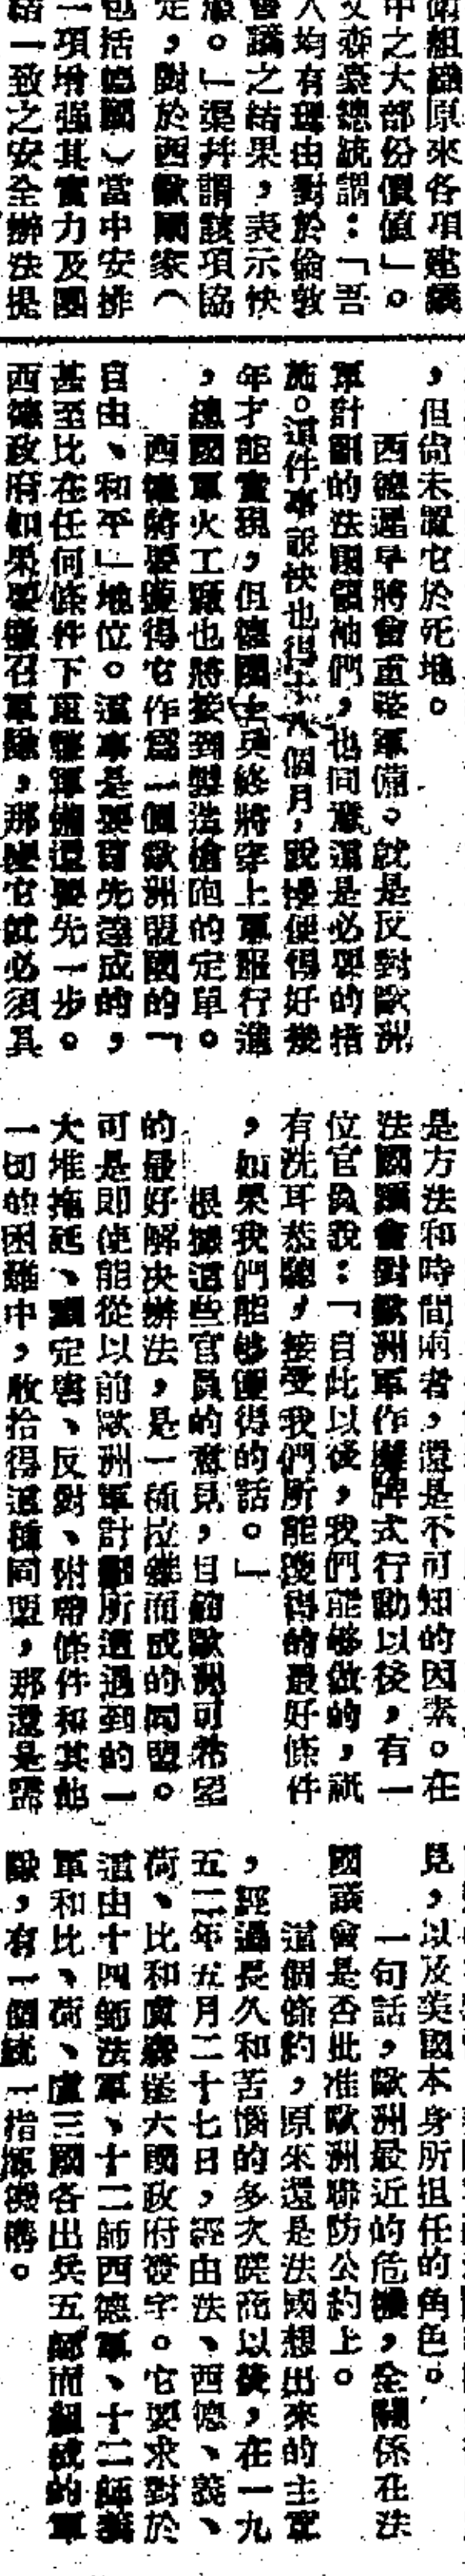 衛組織原來各項建議
中之大部份價值」。
文森臺總統謂：「吾
人均有理由對於倫敦
會議之結果，表示快
慰。」渠幷謂該項協
定，對於西歐國家（
包括德國）當中安排
一項增强其實力及團
結一致之安全辦法提
，但尙未置它於死地。
西德遲早將會重整軍備。就是反對歐洲
軍計劃的法國領袖們，也同意這是必要的措
施。這件事說快也得十八個月，說慢便得好幾
年才能實現，但德國士兵終將穿上軍服行進
，德國軍火工廠也將接到製造槍砲的定單。
西德將要獲得它作爲一個歐洲盟國的「
自由、和平」地位。這事是要首先達成的，
甚至比在任何條件下重整軍備還要先一步。
西德政府如果要徵召軍隊，那麼它就必須具
是方法和時間兩者，還是不可知的因素。在
法國議會對歐洲軍作攤牌式行動以後，有一
位官員說：「自此以後，我們能够做的，祇
有洗耳恭聽，接受我們所能獲得的最好條件
，如果我們能够獲得的話。」
根據這些官員的意見，目前歐洲可希望
的最好解决辦法，是一種拉雜而成的同盟。
可是即使能從以前歐洲軍計劃所遭遇到的一
大堆拖延、否定書、反對、附帶條件和其他
一切的困難中，收拾得這種同盟，那還是需
見，以及英國本身所担任的角色。
一句話，歐洲最近的危機，全關係在法
國議會是否批准歐洲聯防公約上。
這個條約，原來還是法國想出來的主意
，經過長久和苦惱的多次磋商以後，在一九
五二年五月二十七日，經由法、西德、義、
荷、比和盧森堡六國政府簽字。它要求對於
這由十四師法軍、十二師西德軍、十二師義
軍和比、荷、盧三國各出兵五師而組成的軍
隊，有一個統一指揮機構。